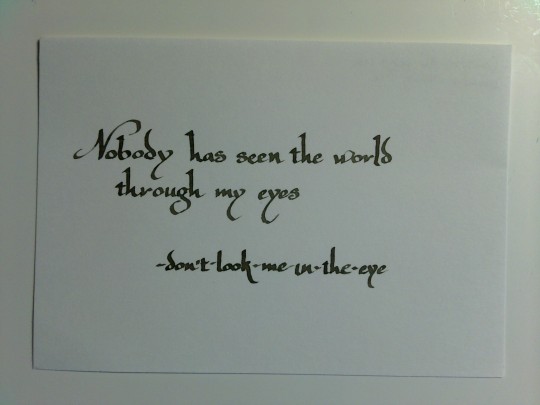 Nobody has seen the world
through my eyes
-don't-look-me-in-the-eye